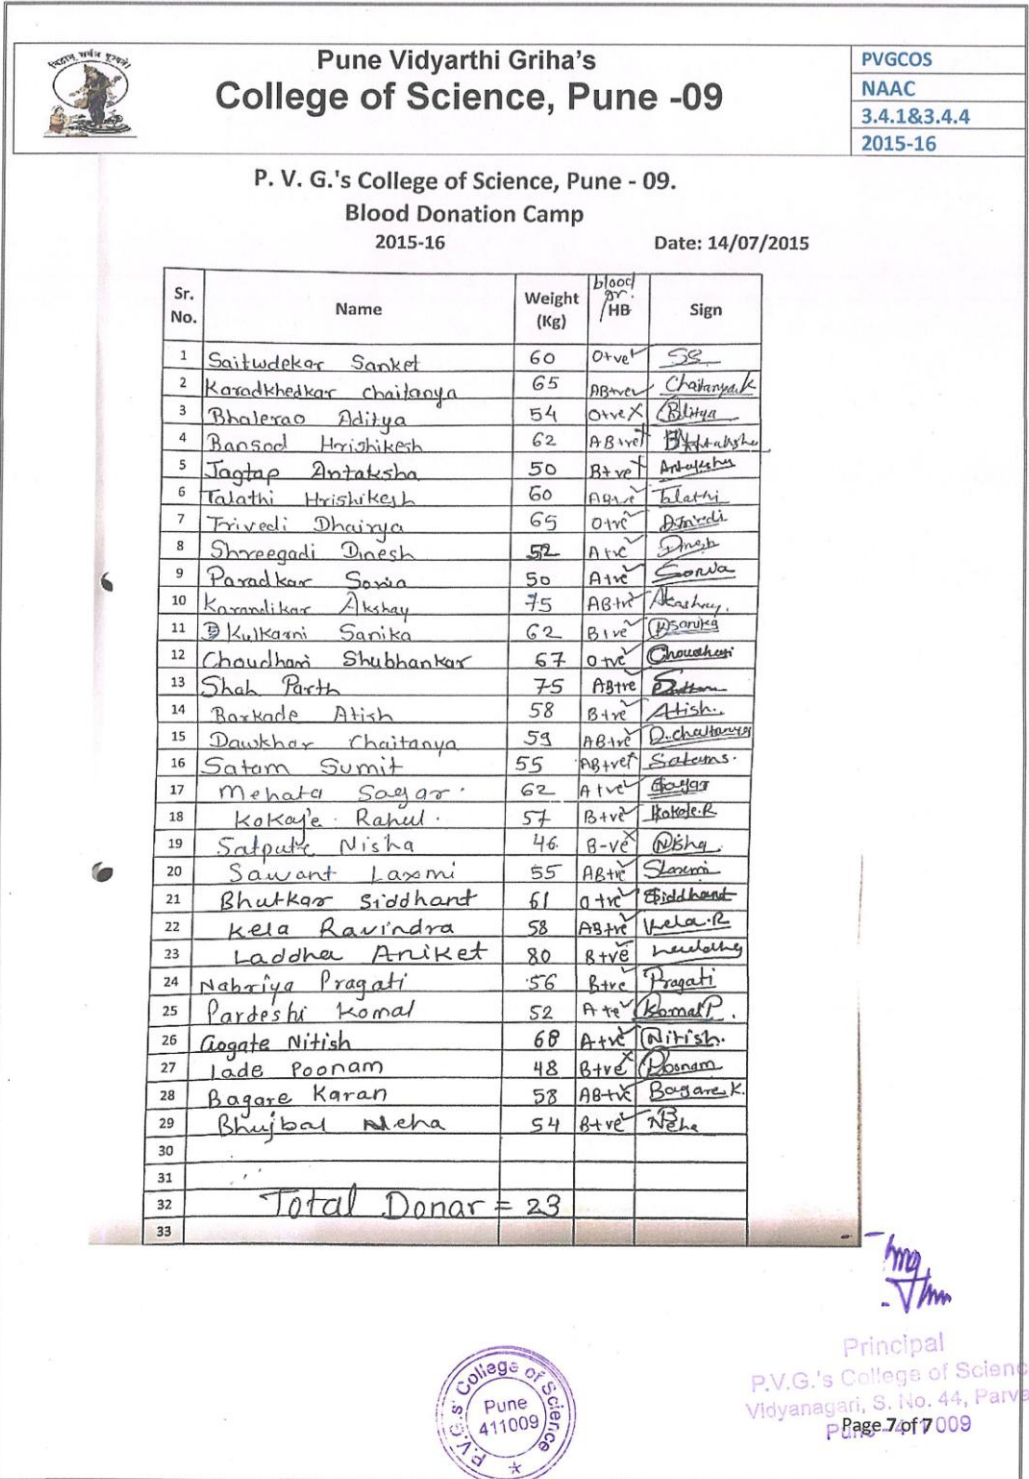 विद्वान् सर्वत्र पूज्यते
Pune Vidyarthi Griha's
College of Science, Pune -09
PVGCOS
NAAC
3.4.1&3.4.4
2015-16
P. V. G.'s College of Science, Pune - 09.
Blood Donation Camp
2015-16 Date: 14/07/2015
Sr. No. Name Weight (Kg) blood gr. /HB Sign
1 Saitwdekar Sanket 60 O+ve✓ SS
2 Karadkhedkar chaitanya 65 AB+ve✓ Chaitanya.K
3 Bhalerao Aditya 54 O+ve X Aditya
4 Bansod Hrishikesh 62 AB+ve X
5 Jagtap Antaksha 50 B+ve X Antaksha
6 Talathi Hrishikesh 60 AB+ve✓ Talathi
7 Trivedi Dhairya 65 O+ve✓ Dtrivedi
8 Shreegadi Dinesh 52 A+ve✓ Dinesh
9 Paradkar Sonia 50 A+ve✓ Sonia
10 Karandikar Akshay 75 AB+ve✓ Akshay.
11 Kulkarni Sanika 62 B+ve✓ Sanika
12 Choudhari Shubhankar 67 O+ve✓ Choudhari
13 Shah Parth 75 AB+ve
14 Barkade Atish 58 B+ve✓ Atish.
15 Dawkhar Chaitanya 59 AB+ve✓ D.chaitanya
16 Satam Sumit 55 AB+ve X Satams.
17 Mehata Sagar. 62 A+ve✓ Sagar
18 Kokaje. Rahul. 57 B+ve✓ Kokaje.R
19 Satpute Nisha 46 B-ve X Nisha
20 Sawant Laxmi 55 AB+ve✓ Slaxmi
21 Bhutkar Siddhant 61 O+ve✓ Siddhant
22 Kela Ravindra 58 AB+ve✓ Kela.R
23 Laddha Aniket 80 B+ve✓
24 Nahriya Pragati 56 B+ve✓ Pragati
25 Pardeshi Komal 52 A+ve✓ Komal P.
26 Gogate Nitish 68 A+ve✓ Nitish.
27 Lade Poonam 48 B+ve X Poonam
28 Bagare Karan 58 AB+ve✓ Bagare.K.
29 Bhujbal Neha 54 B+ve✓ Neha
30
31
32 Total Donar = 23
33
Principal
P.V.G.'s College of Scienc
Vidyanagari, S. No. 44, Parva
Pune - 411009
Page 7 of 7
P.V.G.s' College of Science
Pune
411009